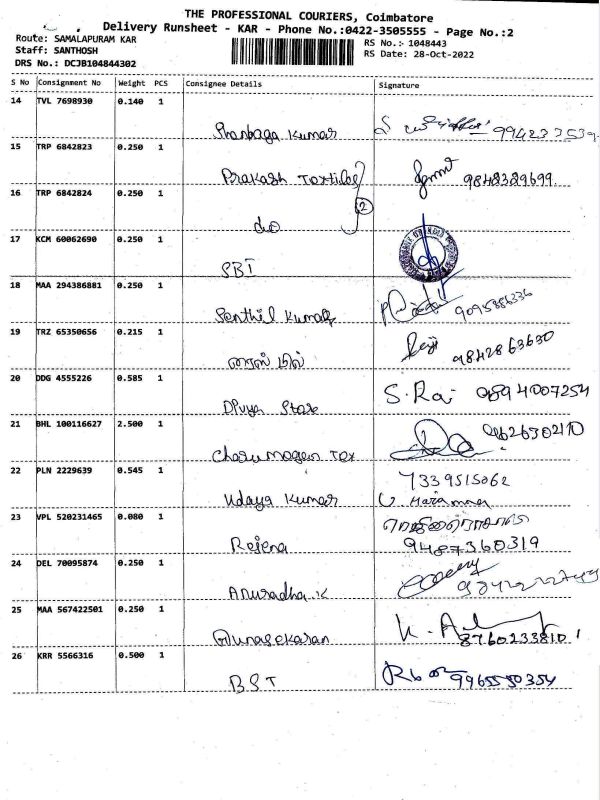 THE PROFESSIONAL COURIERS, Coimbatore
Delivery Runsheet - KAR - Phone No.:0422-3505555 - Page No.:2
Route: SAMALAPURAM KAR
RS No.:- 1048443
Staff: SANTHOSH
RS Date: 28-Oct-2022
DRS No.: DCJB104844302
S No Consignment No Weight PCS Consignee Details Signature
14 TVL 7698930 0.140 1
Kumar
15 TRP 6842823 0.250 1
Prakash Textiles 9848389699
16 TRP 6842824 0.250 1
2
do
17 KCM 60062690 0.250 1
SBI
18 MAA 294386881 0.250 1
Senthil Kumar
19 TRZ 65350656 0.215 1
9842863630
20 DDG 4555226 0.585 1
Store S. Raj 9894007254
21 BHL 100116627 2.500 1
Tex
22 PLN 2229639 0.545 1
7339515062
Udaya Kumar
23 VPL 520231465 0.080 1
Rejena 9487360319
24 DEL 70095874 0.250 1
Anuradha.K
25 MAA 567422501 0.250 1
Gunasekaran 8760233810
26 KRR 5566316 0.500 1
BST 9965550354